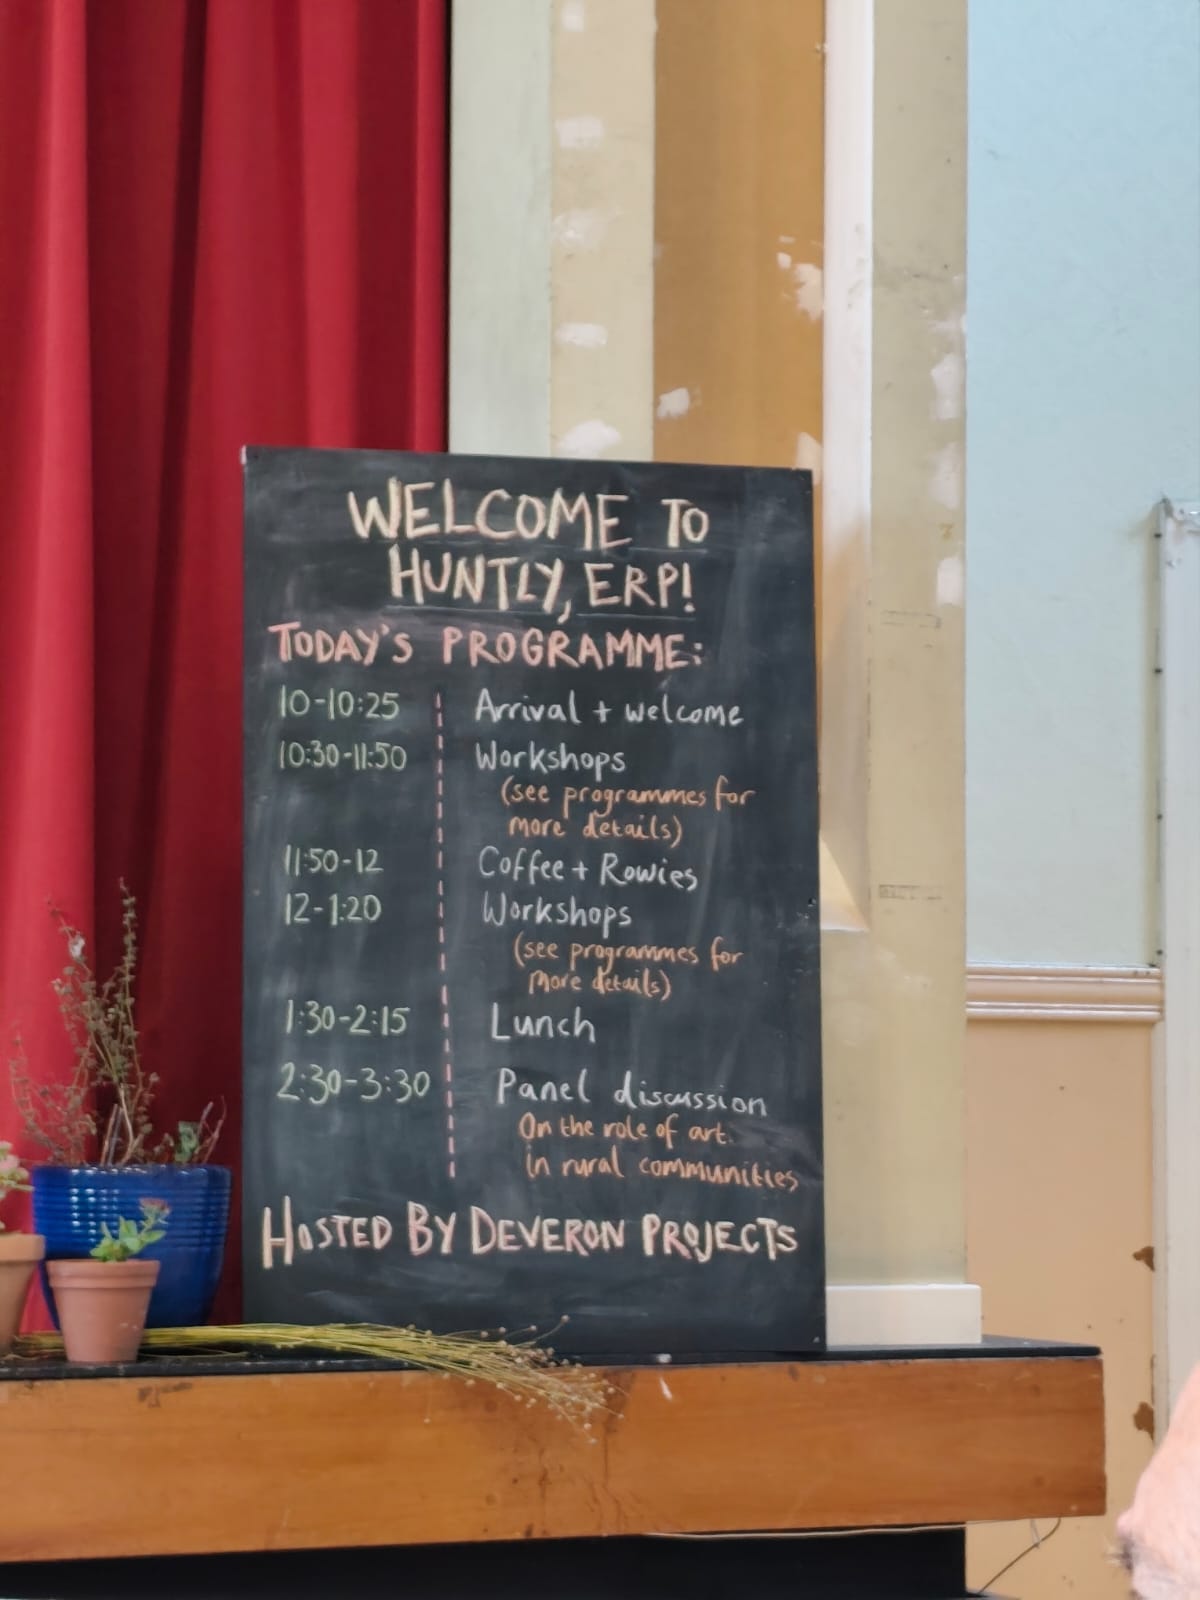 WELCOME TO
HUNTLY, ERP!
TODAY'S PROGRAMME:
10-10:25 Arrival + welcome
10:30-11:50 Workshops
(see programmes for
more details)
11:50-12 Coffee + Rowies
12-1:20 Workshops
(see programmes for
more details)
1:30-2:15 Lunch
2:30-3:30 Panel discussion
On the role of art
in rural communities
HOSTED BY DEVERON PROJECTS